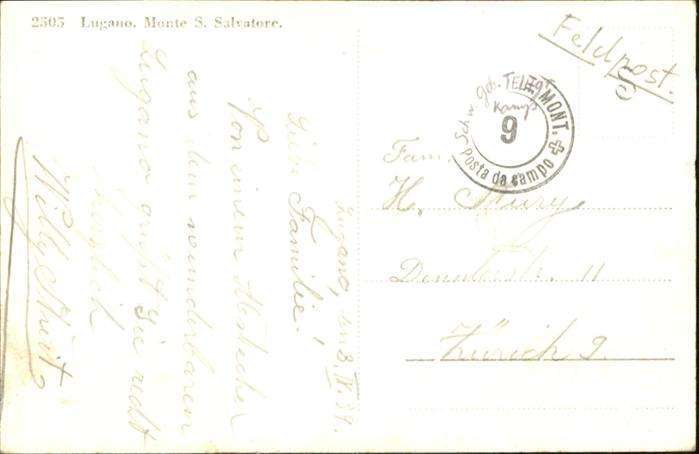 2505 Lugano. Monte S. Salvatore.
Feldpost.
Schw. Geb. TELEGR
MONT.
Kamp
9
Posta da campo
Lugano, den 8. IX. 39.
Liebe Familie!
Von einem Abstecher
aus dem wunderbaren
Lugano grüsst Sie recht
herzlich
Willy
Fam.
H.
11
Zürich 2.